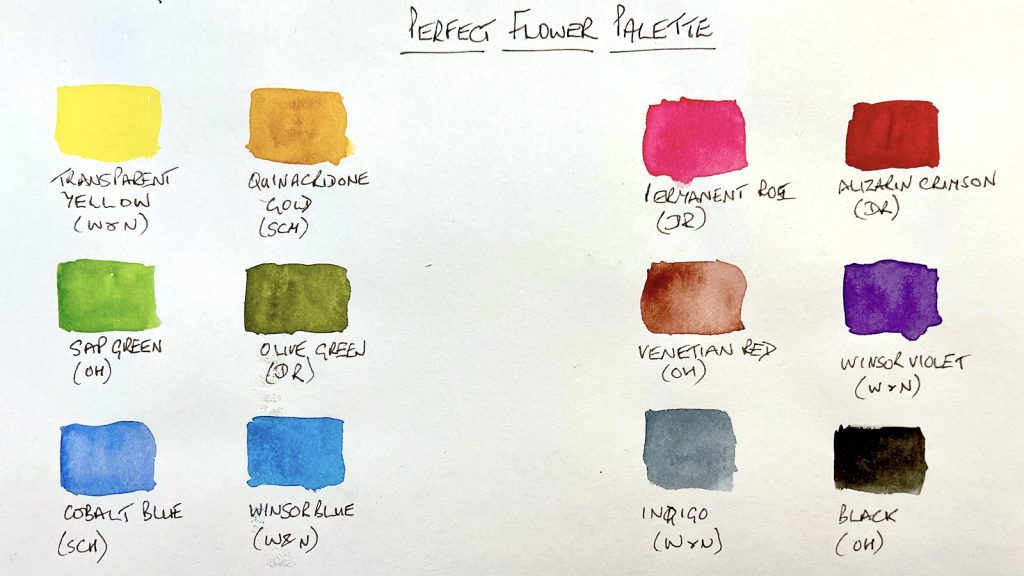 PERFECT FLOWER PALETTE
TRANSPARENT
YELLOW
(W&N)
QUINACRIDONE
GOLD
(SCH)
PERMANENT ROSE
(DR)
ALIZARIN CRIMSON
(DR)
SAP GREEN
(OH)
OLIVE GREEN
(DR)
VENETIAN RED
(OH)
WINSOR VIOLET
(W&N)
COBALT BLUE
(SCH)
WINSOR BLUE
(W&N)
INDIGO
(W&N)
BLACK
(OH)